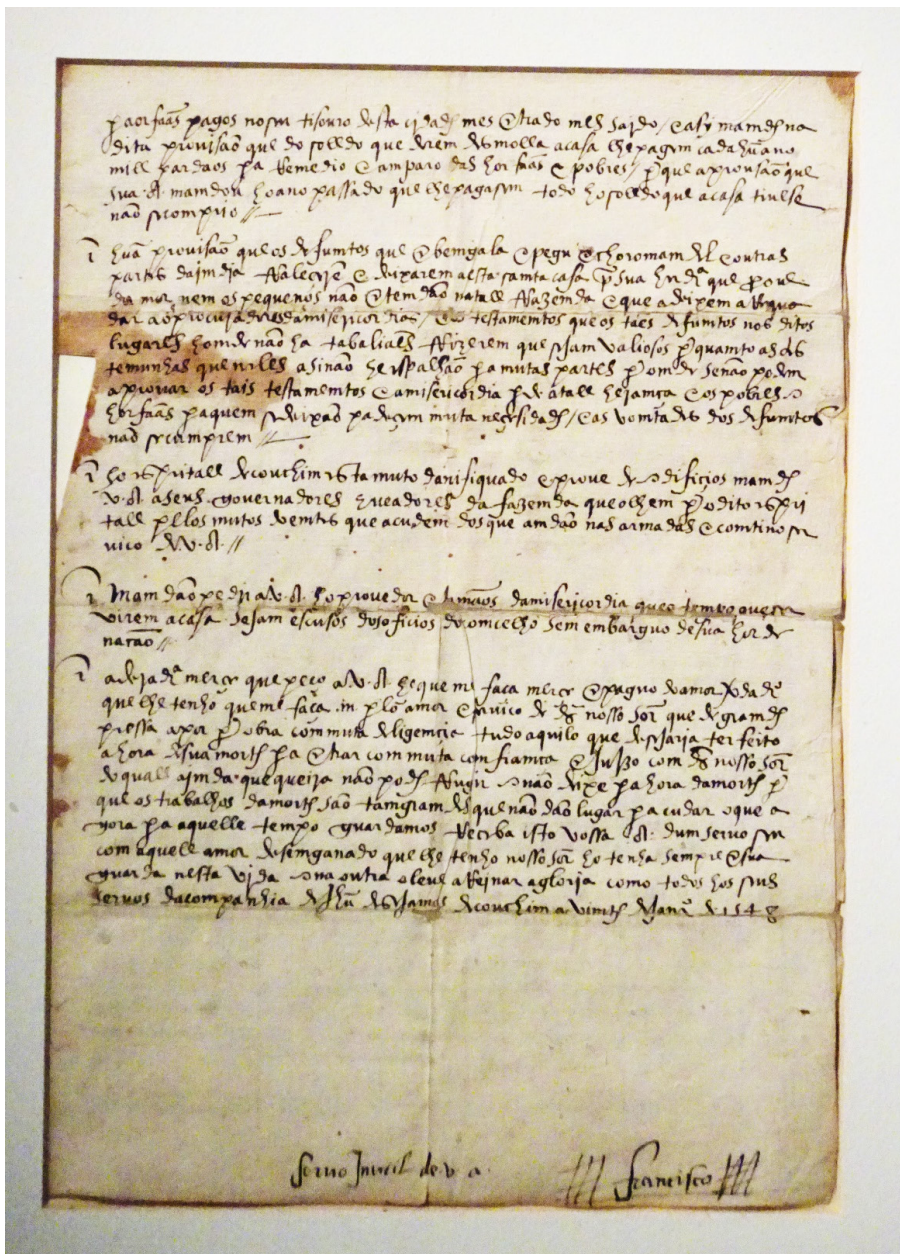 pa orfaãs pagos no seu tisouro desta cidade mes entrado mes saido / e asy mamde na
dita provisão que do solldo que derem desmolla a casa lhe pagem cada huũ ano
mill pardaos pa Remedio e amparo das horfaãs e pobres / pque a provisão que
sua .A. mamdou ho ano passado que lhe pagasem todo ho solldo que a casa tivese
não se comprio //
huã provisão que os defumtos que em bemgala e pegu e choromamdell e outras
partes da imdia ffalecerẽ e deixarem a esta samta casa
da mor nem os pequenos não emtemdão na tall ffazemda e que a deixem a
dar aos procuradores da misericordia / e os testamemtos que os taes defumtos nos ditos
lugares homde não ha tabaliaẽs ffizerem que sejam valiosos pquamto as tes
temunhas que nelles asinão se espalhão pa mutas partes p omde se não podem
aprovar os tais testamemtos e a misericordia p de a tall hejamça e os pobres
horfaãs pa quem se deixão padeçem muta neçesidade / e as vomtades dos defumtos
não se cumprem //
ho espritall de couchim esta muto danifiquado e prove de edifiçios mamde
v. A. a seus governadores he veadores da fazemda que olhem p o dito espri
tall pellos mutos doemtes que acudem dos que amdão nas armadas e comtino ser
viço de V. A. //
Mamdão pedir a V. A. ho provedor e irmãos da misericordia que o tempo que ser
virem a casa sejam escusos dos ofiçios do comcelho sem embarguo de sua hor de
nação //
a derradrª merce que peço a V. A. he que me faça merce em paguo do amor vdadrº
que lhe tenho que me faça in p lo amor e serviço de ds nosso sor que de gramde
pressa a por p obra com muta deligemcia tudo aquilo que desejaria ter feito
a hora de sua morte pa emtrar com muta comfiamça em Juizo com ds nosso sor
do quall aimda que queira não pode ffugir e não deixe pa hora da morte p
que os trabalhos da morte são tam gramdes que não dão lugar pa cudar o que a
gora pa aquelle tempo guardamos Reçeba isto vossa .A. dum servo seu
com aquell amor desemganado que lhe tenho nosso sor ho tenha sempre em sua
guarda nesta vida e na outra o leve a Reinar a gloria como todos hos seus
servos da companhia de Jhũ desejamos de couchim a vimte de Janrº de 1548
servo Inutil de v. a. Francisco